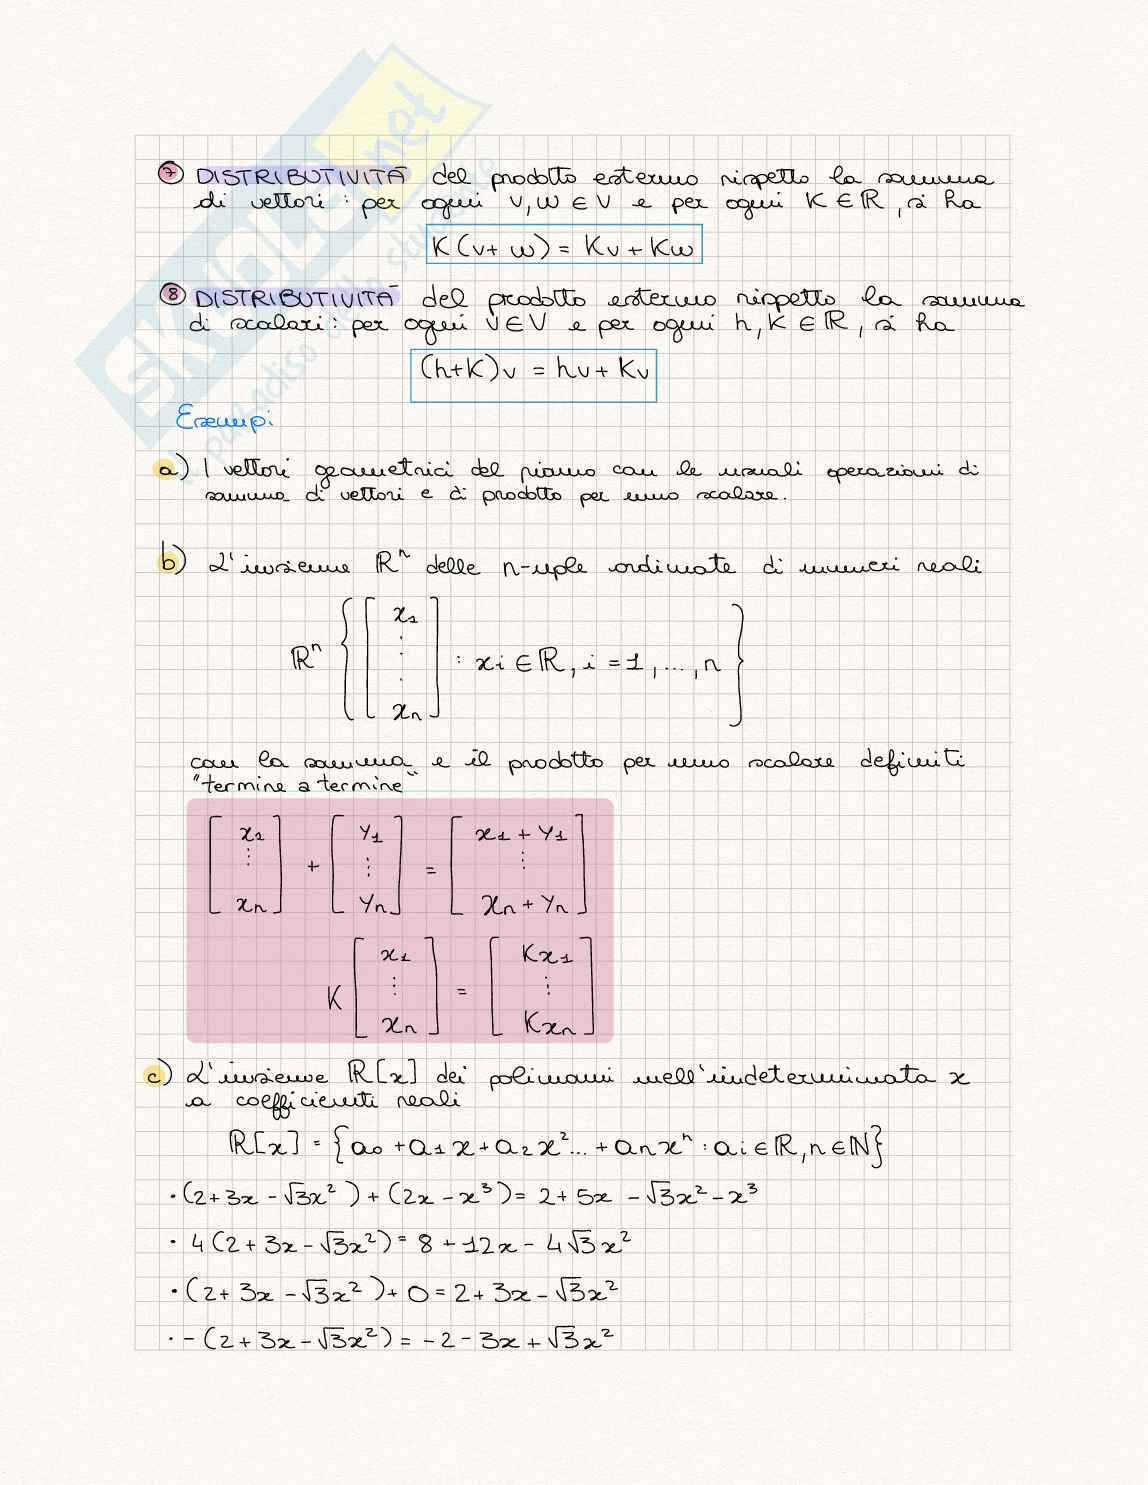 ⑦ DISTRIBUTIVITÀ del prodotto esterno rispetto la somma
di vettori : per ogni v, w ∈ V e per ogni K ∈ ℝ, si ha
K(v+ w) = Kv + Kw
⑧ DISTRIBUTIVITÀ del prodotto esterno rispetto la somma
di scalari: per ogni v ∈ V e per ogni h, K ∈ ℝ, si ha
(h+K)v = hv + Kv
Esempi
a) I vettori geometrici del piano con le usuali operazioni di
somma di vettori e di prodotto per uno scalare.
b) L'insieme ℝⁿ delle n-uple ordinate di numeri reali
ℝⁿ { [ x1 ⋮ xn ] : xi ∈ ℝ, i = 1, ..., n }
con la somma e il prodotto per uno scalare definiti
"termine a termine"
[ x1 ⋮ xn ] + [ y1 ⋮ yn ] = [ x1 + y1 ⋮ xn + yn ]
K [ x1 ⋮ xn ] = [ Kx1 ⋮ Kxn ]
c) L'insieme ℝ[x] dei polinomi nell'indeterminata x
a coefficienti reali
ℝ[x] = {a0 + a1x + a2x² ... + anxⁿ : ai ∈ ℝ, n ∈ ℕ}
• (2 + 3x - √3x²) + (2x - x³) = 2 + 5x - √3x² - x³
• 4(2 + 3x - √3x²) = 8 + 12x - 4√3x²
• (2 + 3x - √3x²) + 0 = 2 + 3x - √3x²
• - (2 + 3x - √3x²) = -2 - 3x + √3x²
SKUOLA.net
il paradiso dello studente